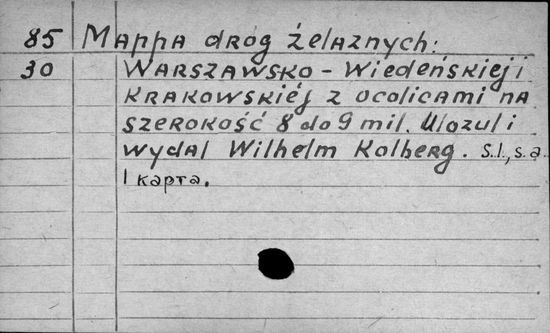 85 Mappa dróg żelaznych:
30 Warszawsko - Wiedeńskiej i
Krakowskiéj z ocolicami na
szerokość 8 do 9 mil. Ulozul i
wydal Wilhelm Kolberg. S.l., s.a.
1 карта.